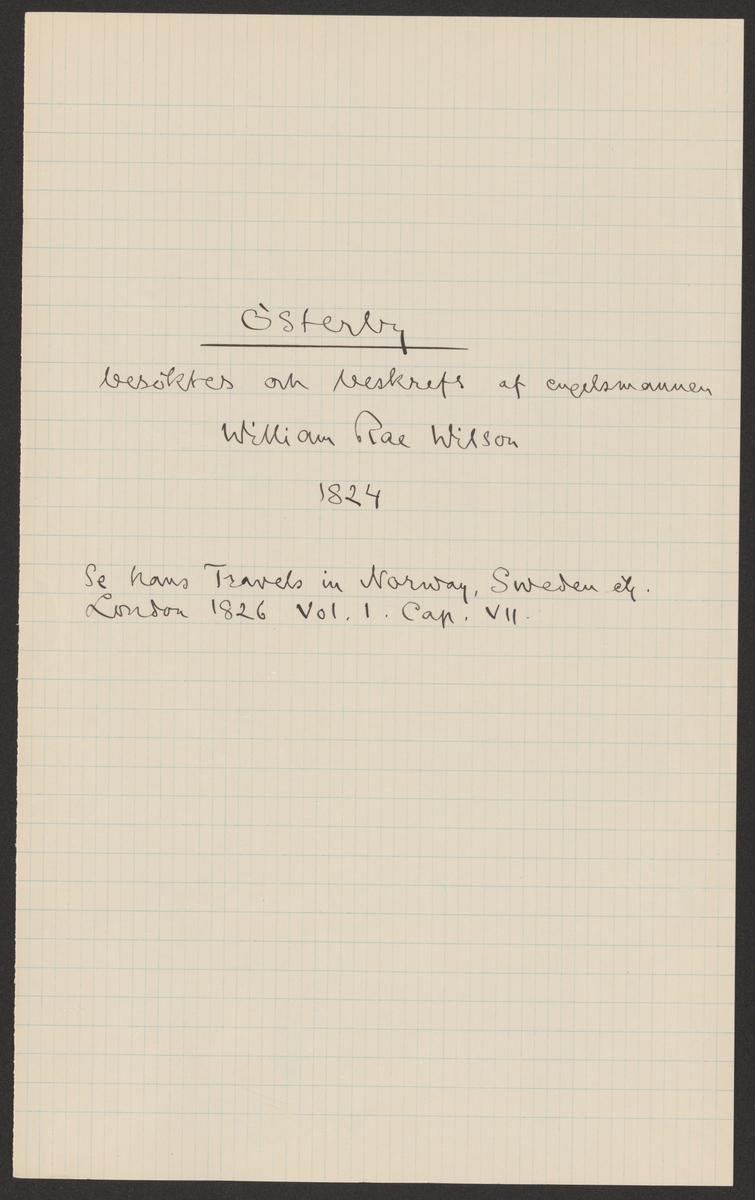 Österby
besöktes och beskrefs af engelsmannen
William Rae Wilson
1824
Se hans Travels in Norway, Sweden etc.
London 1826 Vol. I. Cap. VII.